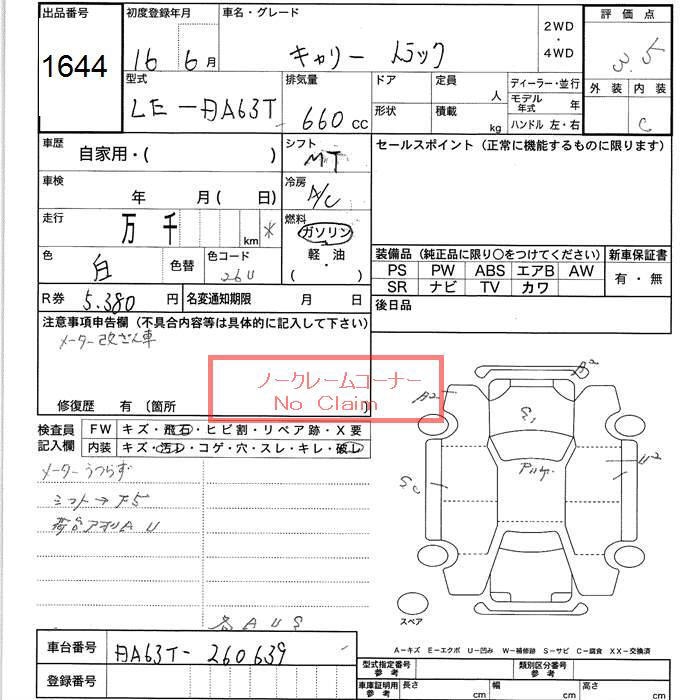 出品番号 初度登録年月 車名・グレード 2WD ・ 4WD 評価点
1644 16 6月 キャリー トラック 3.5
型式 排気量 ドア 定員 人 ディーラー・並行 外装 内装
LE-DA63T 660 cc 形状 積載 kg モデル年式 年 ハンドル 左・右 C
車歴 自家用・( ) シフト MT セールスポイント(正常に機能するものに限ります)
車検 年 月( 日) 冷房 A/C
走行 万 千 km * 燃料 ガソリン
軽油
・( )
色 白 色替 色コード 26U
装備品(純正品に限り○をつけてください) 新車保証書
PS PW ABS エアB AW 有・無
SR ナビ TV カワ
R券 5.380 円 名変通知期限 月 日 後日品
注意事項申告欄(不具合内容等は具体的に記入して下さい)
メーター改ざん車
ノークレームコーナー
No Claim
修復歴 有 (箇所
検査員記入欄 FW キズ・飛石・ヒビ割・リペア跡・X要
内装 キズ・汚レ・コゲ・穴・スレ・キレ・破レ
メーターうつらず
シフト→F5
荷台アオリAU
各AUS
A2 A2 E1 U2 SC
スペア
A-キズ E-エクボ U-凹み W-補修跡 S-サビ C-腐食 XX-交換済
車台番号 DA63T-260639
登録番号
型式指定番号 参考 類別区分番号 参考
車庫証明用 参考 長さ cm 幅 cm 高さ cm